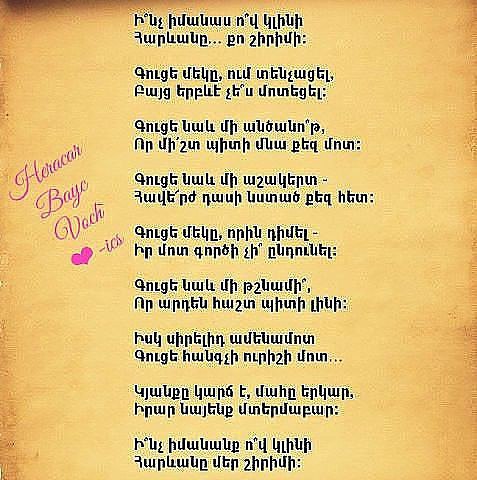 Ի՞նչ իմանաս ո՞վ կլինի
Հարևանը... քո շիրիմի:
Գուցե մեկը, ում տենչացել,
Բայց երբևէ չե՞ս մոտեցել:
Գուցե նաև մի անծանո՞թ,
Որ մի՜շտ պիտի մնա քեզ մոտ:
Գուցե նաև մի աշակերտ -
Հավե՜րժ դասի նստած քեզ հետ:
Գուցե մեկը, որին դիմել -
Իր մոտ գործի չի՞ ընդունել:
Գուցե նաև մի թշնամի՞,
Որ արդեն հաշտ պիտի լինի:
Իսկ սիրելիդ ամենամոտ
Գուցե հանգչի ուրիշի մոտ...
Կյանքը կարճ է, մահը երկար,
Իրար նայենք մտերմաբար:
Ի՞նչ իմանանք ո՞վ կլինի
Հարևանը մեր շիրիմի:
Heracar
Bayc
Voch
-ics